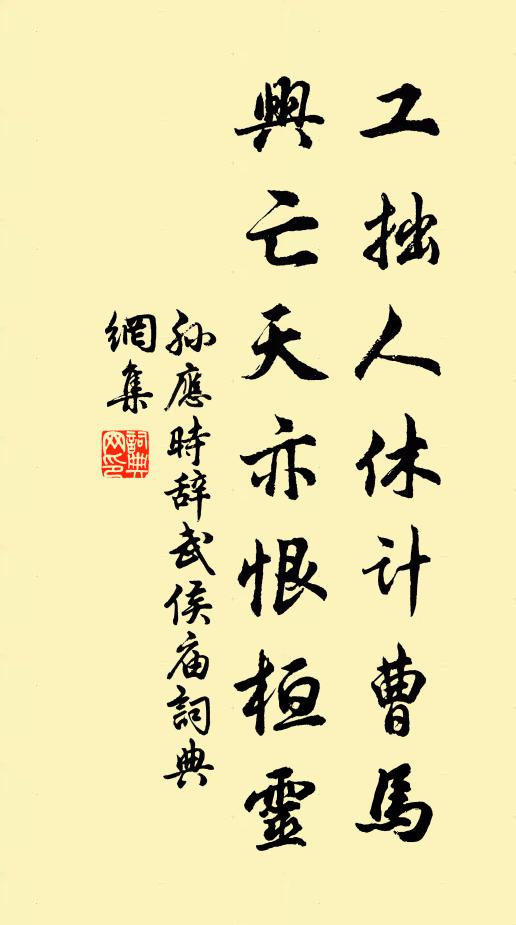 工拙人休计曹馬
興亡天亦恨桓靈
孙應時辞武侯庙詞典
網集
詞典
网印